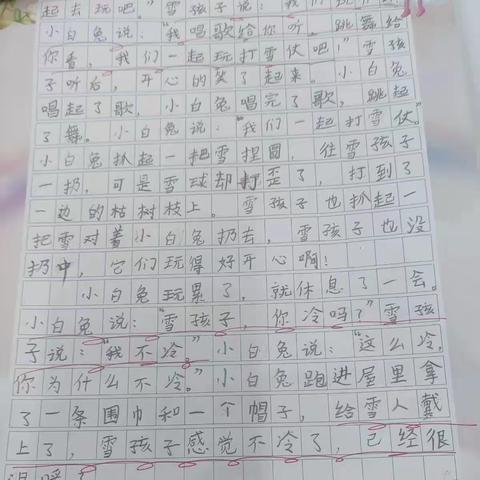 起去玩吧。”雪孩子说：“我们
小白兔说：“我唱歌给你听。跳舞给
你看，我们一起玩打雪仗吧！”雪孩
子听后，开心的笑了起来。小白兔
唱起了歌，小白兔唱完了歌，跳起
了舞。小白兔说：“我们一起打雪仗。”
小白兔抓起一把雪捏圆，往雪孩子
一扔，可是雪球却打歪了，打到了
一边的枯树枝上。雪孩子也抓起一
把雪对着小白兔扔去，雪孩子也没
扔中，它们玩得好开心啊！
小白兔玩累了，就休息了一会。
小白兔说：“雪孩子，你冷吗？”雪孩
子说：“我不冷。”小白兔说：“这么冷，
你为什么不冷。”小白兔跑进屋里拿
了一条围巾和一个帽子，给雪人戴
上了，雪孩子感觉不冷了，已经很
温暖